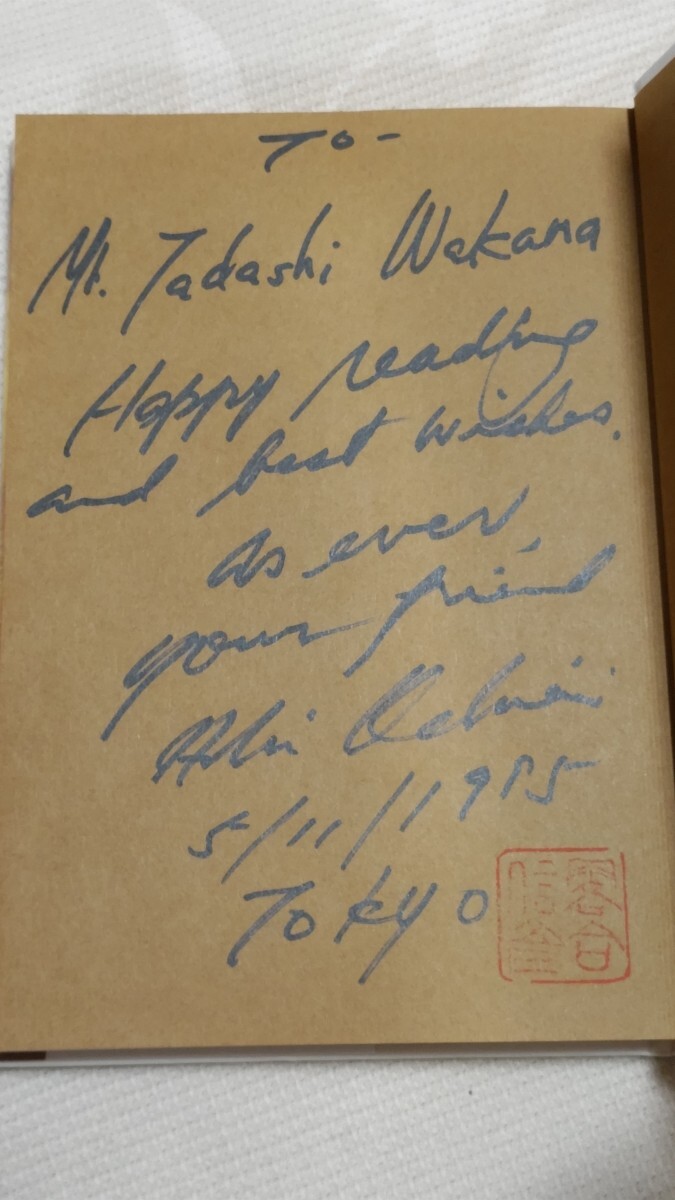 To -
Mr. Tadashi Wakana
Happy reading
and best wishes.
As ever,
your friend
5/11/1985
Tokyo